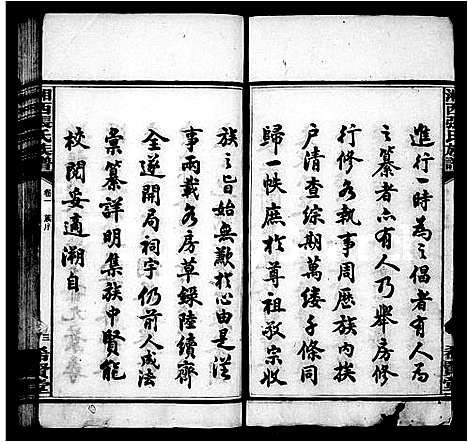 進行一時為之倡者有人局
之纂者亦有人乃舉房修
行修各執事周歷族內挨
户清查綜期萬縷千條同
歸一帙庶於尊祖敬宗收
族之旨始無歉於心由是從
事兩載各房草錄陸續齊
全遂開局祠宇仍前人成法
彙纂詳明集族中賢能
校閱妥適溯自
湘西張氏族譜
卷一
三